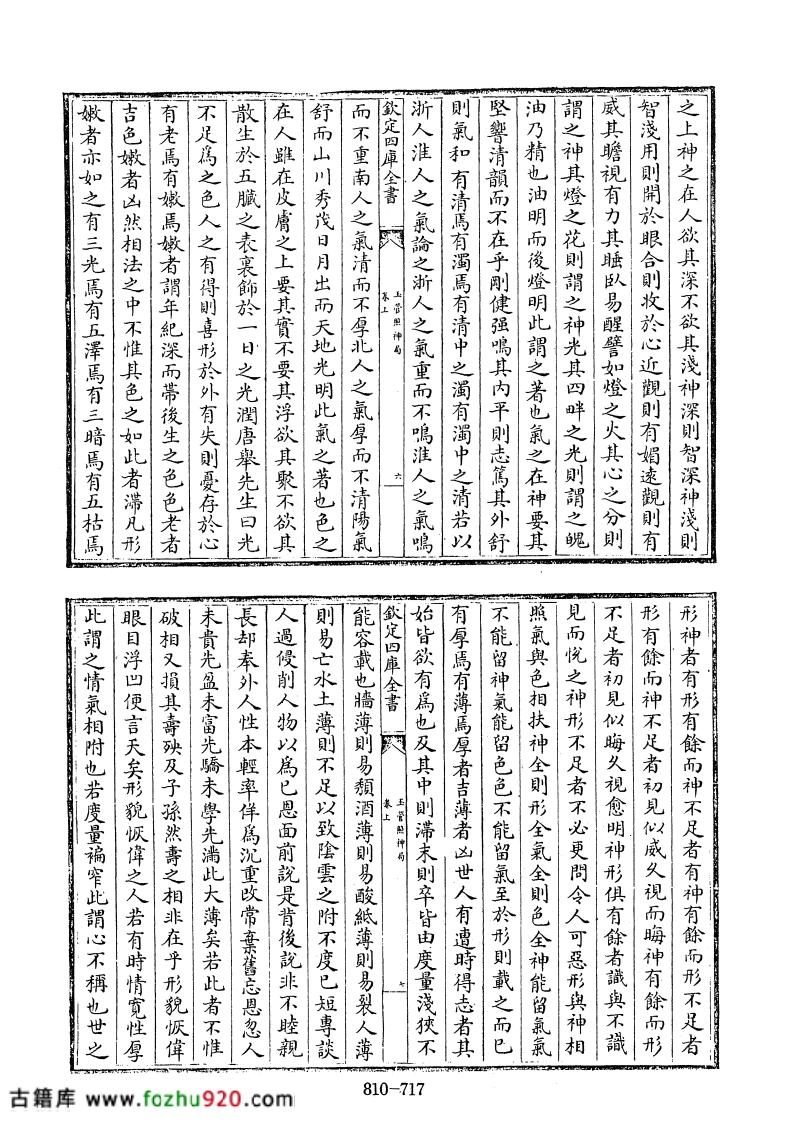 之上神之在人欲其深不欲其淺神深則智深神淺則
智淺用則開於眼合則收於心近觀則有媚遠觀則有
威其瞻視有力其睡臥易醒譬如燈之火其心之分則
謂之神其燈之花則謂之神光其四畔之光則謂之魄
油乃精也油明而後燈明此謂之著也氣之在神要其
堅響清韻而不在乎剛健强鳴其內平則志篤其外舒
則氣和有清焉有濁焉有清中之濁有濁中之清若以
浙人淮人之氣論之浙人之氣重而不鳴淮人之氣鳴
欽定四庫全書
玉管照神局
卷上
六
而不重南人之氣清而不厚北人之氣厚而不清陽氣
舒而山川秀茂日月出而天地光明此氣之著也色之
在人雖在皮膚之上要其實不要其浮欲其聚不欲其
散生於五臟之表裏飾於一日之光潤唐舉先生曰光
不足為之色人之有得則喜形於外有失則憂存於心
有老焉有嫩焉嫩者謂年紀深而帶後生之色色老者
吉色嫩者凶然相法之中不惟其色之如此者滯凡形
嫩者亦如之有三光焉有五澤焉有三暗焉有五枯焉
形神者有形有餘而神不足者有神有餘而形不足者
形有餘而神不足者初見似威久視而晦神有餘而形
不足者初見似晦久視愈明神形俱有餘者識與不識
見而悅之神形不足者不必更問令人可惡形與神相
照氣與色相扶神全則形全氣全則色全神能留氣氣
不能留神氣能留色色不能留氣至於形則載之而已
有厚焉有薄焉厚者吉薄者凶世人有遭時得志者其
始皆欲有為也及其中則滯末則卒皆由度量淺狹不
欽定四庫全書
玉管照神局
卷上
七
能容載也牆薄則易頽酒薄則易酸紙薄則易裂人薄
則易亡水土薄則不足以致陰雲之附不度已短專談
人過侵削人物以為已恩面前說是背後說非不睦親
長却奉外人性本輕率佯為沉重改常棄舊忘恩忽人
未貴先盈未富先驕未學先滿此大薄矣若此者不惟
破相又損其壽殃及子孫然壽之相非在乎形貌恢偉
眼目浮凹便言夭矣形貌恢偉之人若有時情寬性厚
此謂之情氣相附也若度量褊窄此謂心不稱也世之
810-717
古籍库 www.fozhu920.com